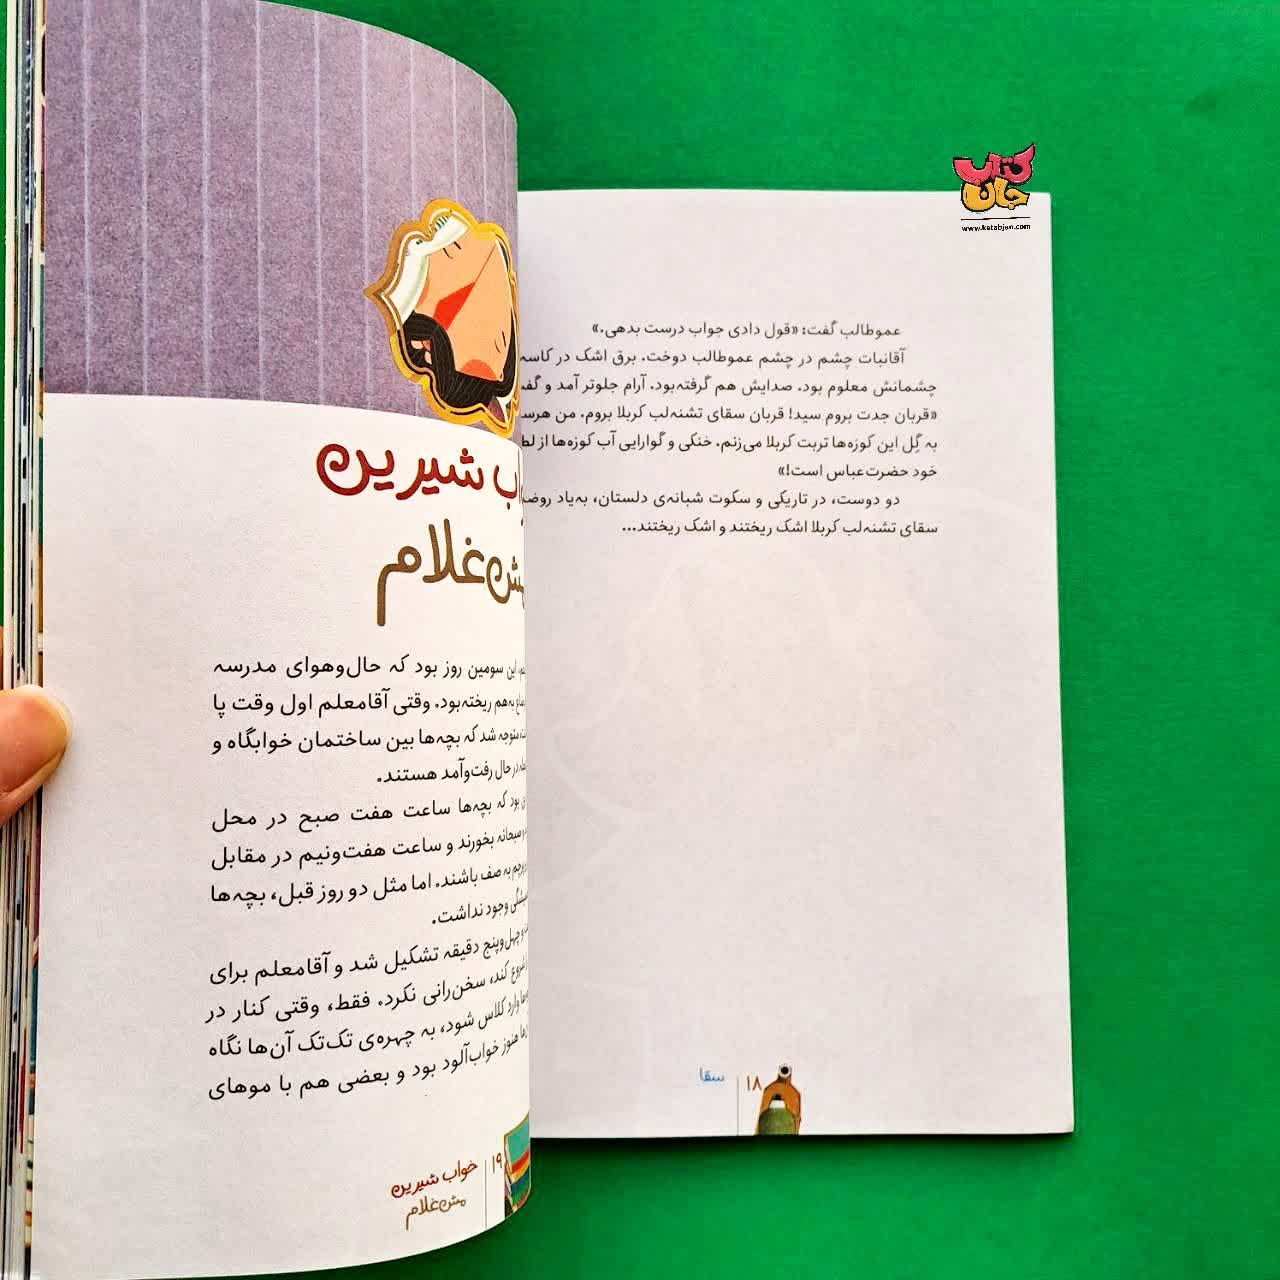 کتاب جان
www.ketabjan.com
عموطالب گفت: «قول دادی جواب درست بدهی.»
آقانبات چشم در چشم عموطالب دوخت. برق اشک در کاسه
چشمانش معلوم بود. صدایش هم گرفته‌بود. آرام جلوتر آمد و
«قربان جدت بروم سید! قربان سقای تشنه‌لب کربلا بروم. من
به گِل این کوزه‌ها تربت کربلا می‌زنم. خنکی و گوارایی آب کوزه‌ها از
خود حضرت‌عباس است!»
دو دوست، در تاریکی و سکوت شبانه‌ی دلستان، به‌یاد
سقای تشنه‌لب کربلا اشک ریختند و اشک ریختند...
۱۸
سقا
شیرین
غلام
این سومین روز بود که حال‌وهوای مدرسه
به‌هم ریخته‌بود. وقتی آقامعلم اول وقت پا
متوجه شد که بچه‌ها بین ساختمان خوابگاه و
در حال رفت‌وآمد هستند.
بود که بچه‌ها ساعت هفت صبح در محل
صبحانه بخورند و ساعت هفت‌ونیم در مقابل
به صف باشند. اما مثل دو روز قبل، بچه‌ها
وجود نداشت.
چهل‌وپنج دقیقه تشکیل شد و آقامعلم برای
شروع کند، سخن‌رانی نکرد. فقط، وقتی کنار در
وارد کلاس شود، به چهره‌ی تک‌تک آن‌ها نگاه
هنوز خواب‌آلود بود و بعضی هم با موهای
۱۹
خواب شیرین
مش‌غلام